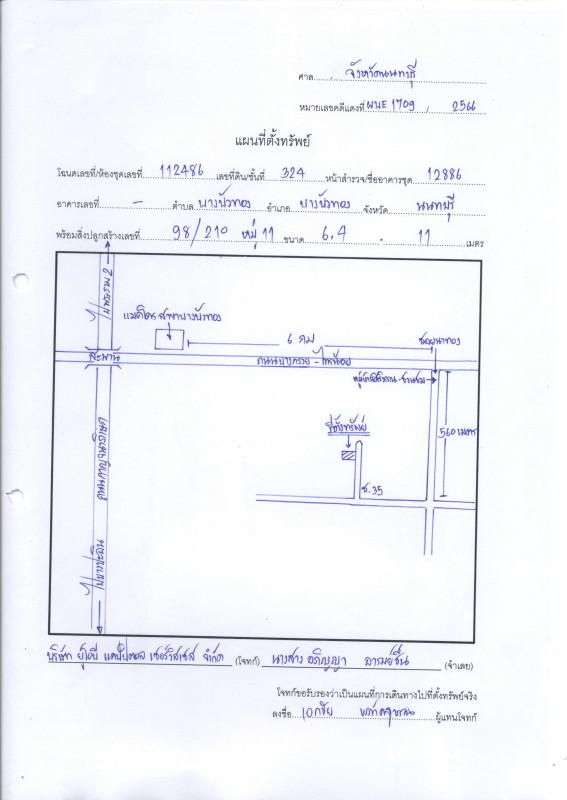 ศาล จังหวัดนนทบุรี
หมายเลขคดีแดงที่ ผบE 1709 / 2566
แผนที่ตั้งทรัพย์
โฉนดเลขที่/ห้องชุดเลขที่ 112486 เลขที่ดิน/ชั้นที่ 324 หน้าสำรวจ/ชื่ออาคารชุด 12886
อาคารเลขที่ - ตำบล บางบัวทอง อำเภอ บางบัวทอง จังหวัด นนทบุรี
พร้อมสิ่งปลูกสร้างเลขที่ 98/210 หมู่ 11 ขนาด 6.4 * 11 เมตร
ไปพระราม 2
แมคโคร สาขาบางบัวทอง
6 กม
สะพาน
ถนนบางกรวย - ไทรน้อย
560 เมตร
ที่ตั้งทรัพย์
ซ.35
ถนนกาญจนาภิเษก
ไปบางปะอิน
บริษัท แคปปิตอล เซอร์วิสเซส จำกัด (โจทก์) นางสาว อภิญญา (จำเลย)
โจทก์ขอรับรองว่าเป็นแผนที่การเดินทางไปที่ตั้งทรัพย์จริง
ลงชื่อ ผู้แทนโจทก์